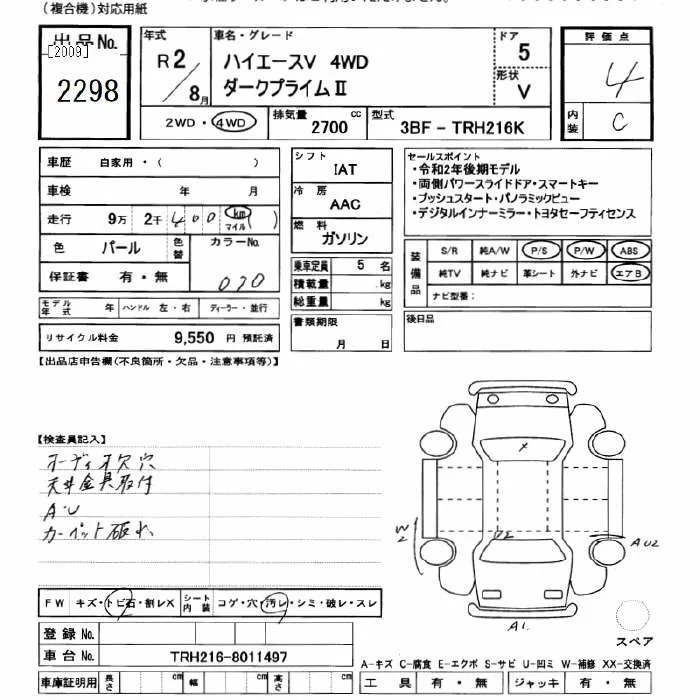 (複合機)対応用紙
出品No.
[2009]
2298
年式
R2/8月
車名・グレード
ハイエースV 4WD
ダークプライムⅡ
ドア
5
形状
V
2WD・4WD
排気量
2700 cc
型式
3BF-TRH216K
評価点
4
内装
C
車歴 自家用・( )
車検 年 月
走行 9万 2千 400 km マイル ( )
色 パール 色替 カラーNo.
070
保証書 有・無
モデル年式 年 ハンドル 左・右 ディーラー・並行
リサイクル料金 9,550 円 預託済
シフト
IAT
冷房
AAC
燃料
ガソリン
乗車定員 5 名
積載量 kg
総重量 kg
書類期限
月 日
セールスポイント
・令和2年後期モデル
・両側パワースライドドア・スマートキー
・プッシュスタート・パノラミックビュー
・デジタルインナーミラー・トヨタセーフティセンス
装備品
S/R 純A/W P/S P/W ABS
純TV 純ナビ 革シート 外ナビ エアB
ナビ型番:
後日品
【出品店申告欄(不良箇所・欠品・注意事項等)】
【検査員記入】
オーディオ欠 穴
天井金具取付
A・U
カーペット破れ
FW キズ・トビ石・割レX シート内装 コゲ・穴・汚レ・シミ・破レ・スレ
登録No.
車台No. TRH216-8011497
車庫証明用 長さ cm 幅 cm 高さ cm
X
W2
U2
AU2
A1.
スペア
A-キズ C-腐食 E-エクボ S-サビ U-凹ミ W-補修 XX-交換済
工具 有・無 ジャッキ 有・無